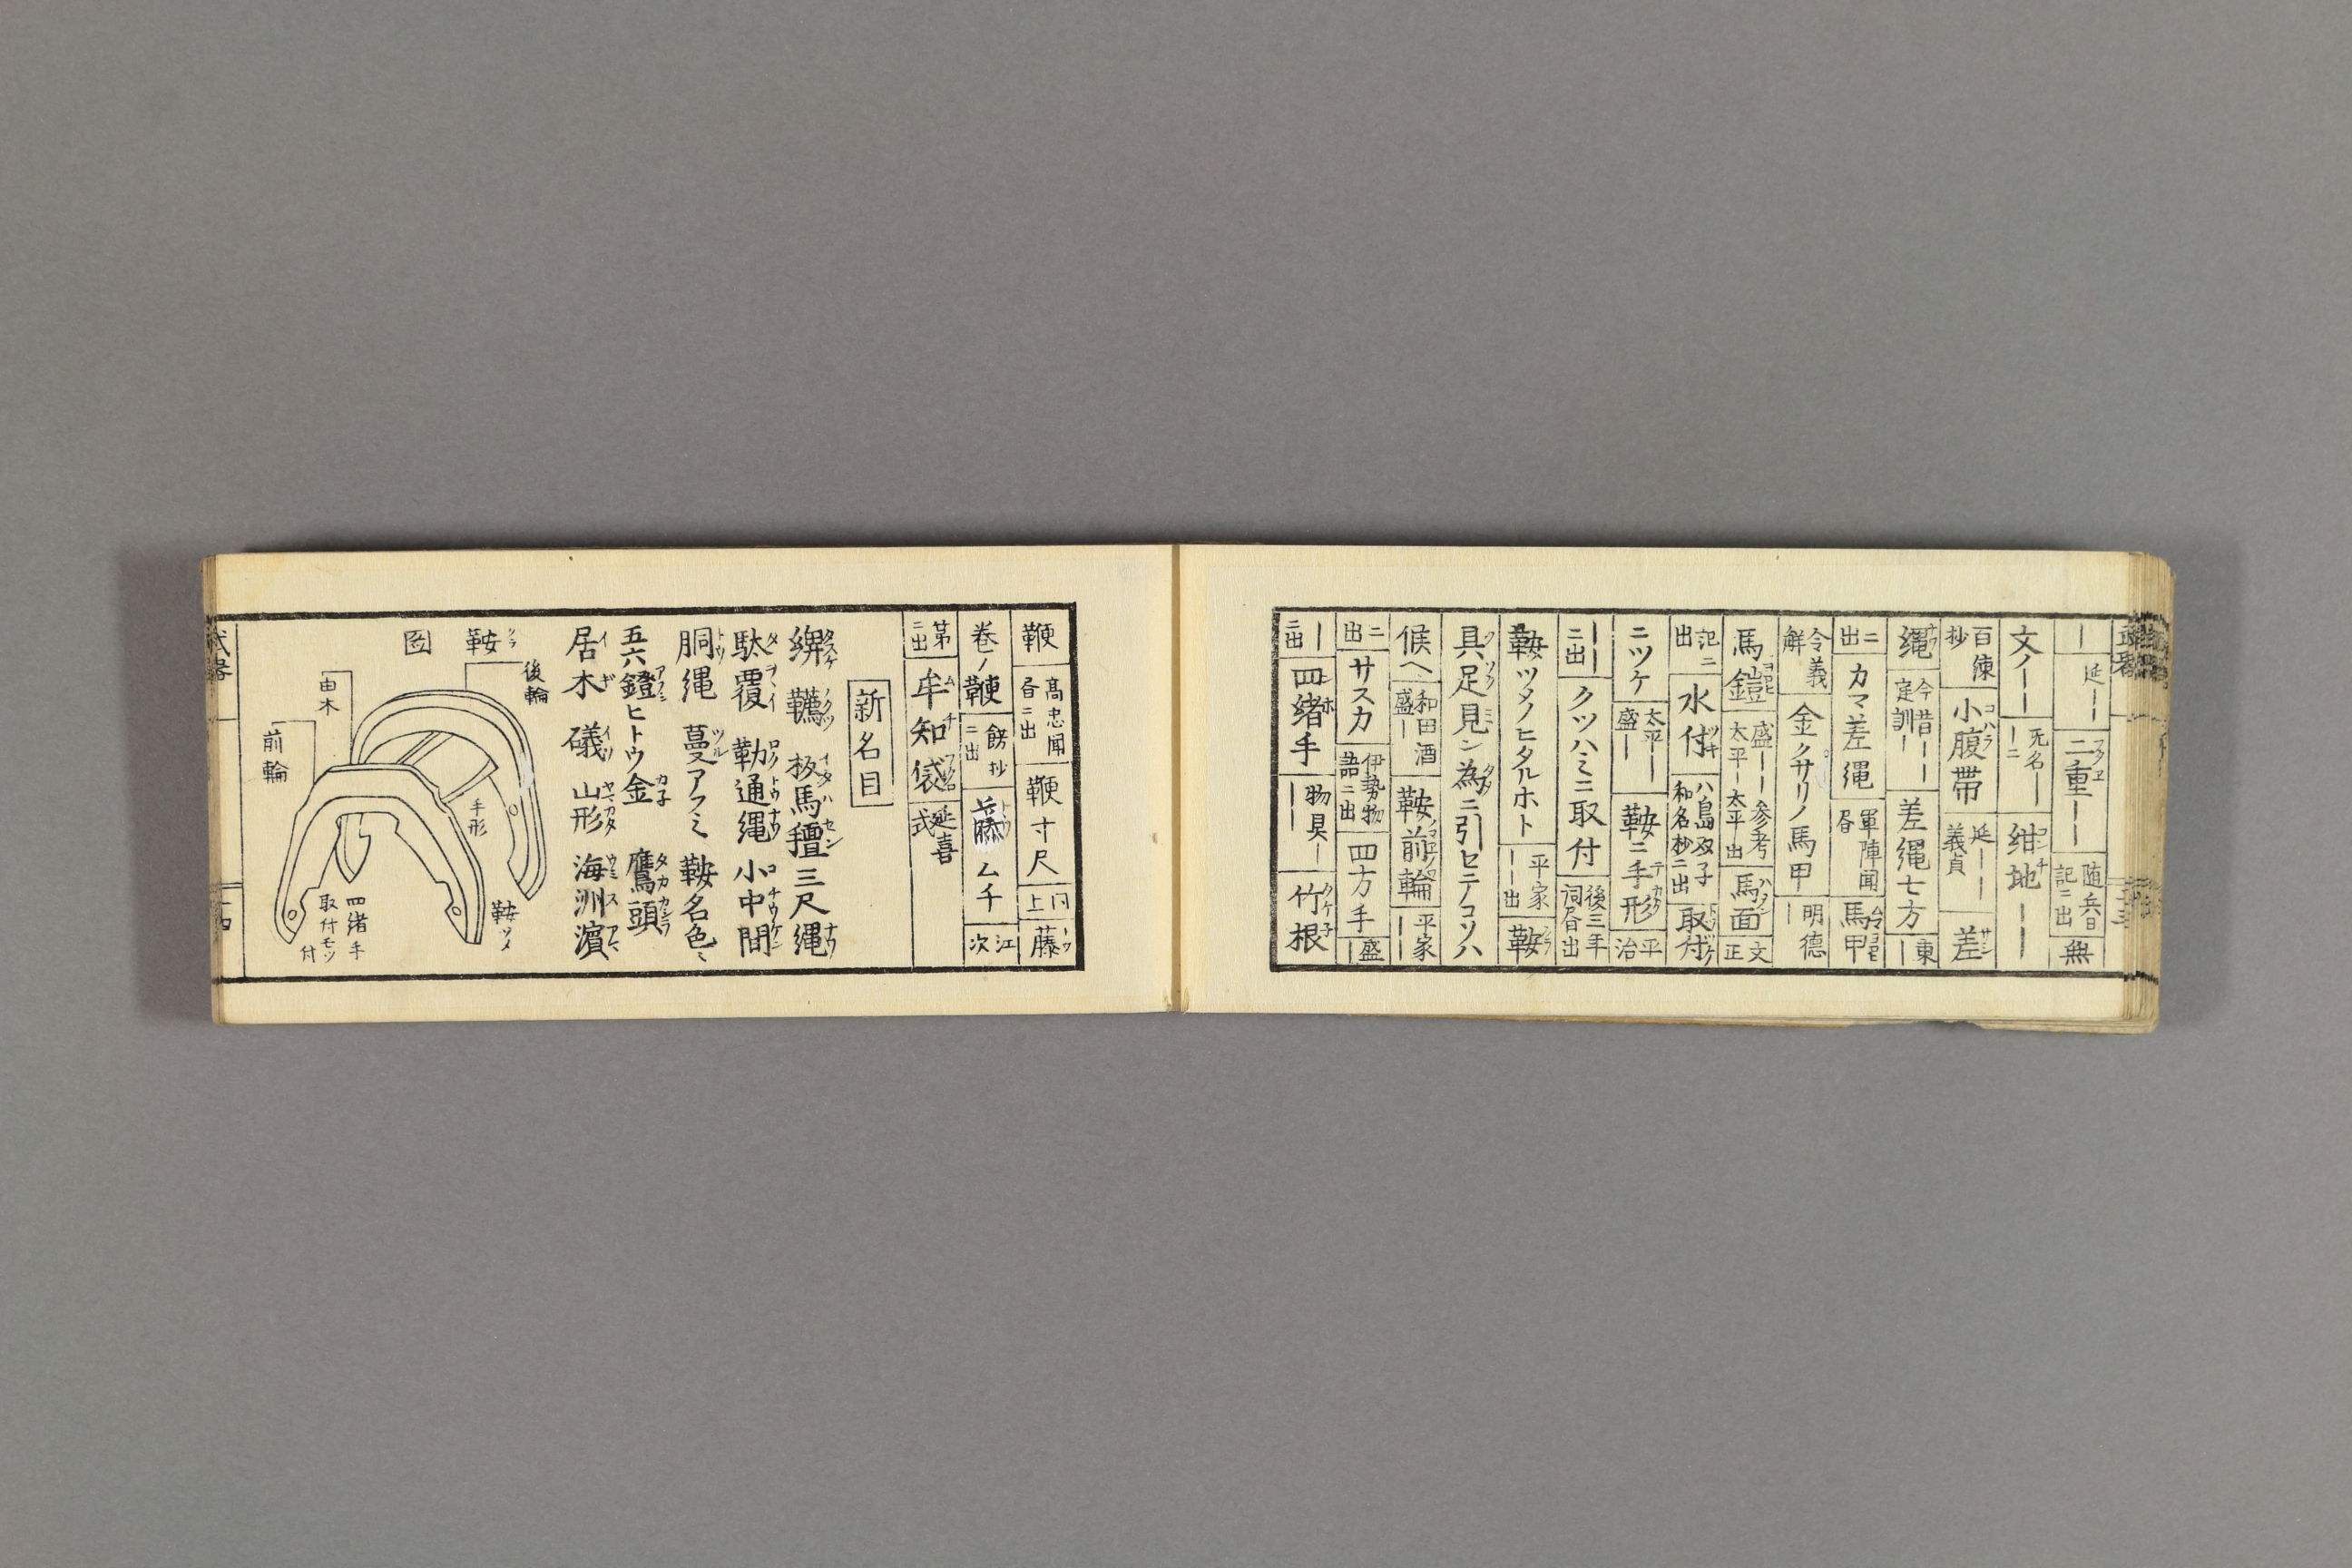 ｜ 延｜｜ 二重｜｜ 随兵日記ニ出 無
文ノ｜｜ 无名｜｜ニ 紺地｜｜
百練抄 小腹帯 延｜｜義貞 差
縄 今昔｜｜庭訓｜ 差縄七方 東｜
ニ出 カマ差縄 軍陣聞昏 馬甲
令義解 金クサリノ馬甲 明徳｜
馬鎧 盛｜｜参考太平｜太平出 馬面 文正
記ニ出 水付 八島双子和名抄ニ出 取付
ニツケ 太平｜盛｜｜ 鞍ニ手形 平治
｜｜ニ出 クツハミニ取付 後三年詞昏出
鞍ツメノヒタルホト 平家｜｜出 鞍
具足見ン為ニ引セテコソハ
候ヘ 和田酒盛｜ 鞍前輪 平家｜
ニ出 サスカ 伊勢物語ニ出 四方手 盛｜
｜ニ出 四緒手 物具｜｜｜ 竹根
鞭 高忠聞昏ニ出 鞭寸尺 同上 藤
巻ノ鞭 餝抄ニ出 藤ムチ 江次
第ニ出 牟知袋 延喜式
新名目
韉 板馬氊 三尺縄
駄覆 勒通縄 小中間
胴縄 蔓アフミ 鞍名色々
五六鐙 ヒトウ金 鷹頭
居木 礒 山形 海 洲濱
鞍図
後輪
由木
前輪
手形
鞍ツメ
四緒手
取付モツ
付